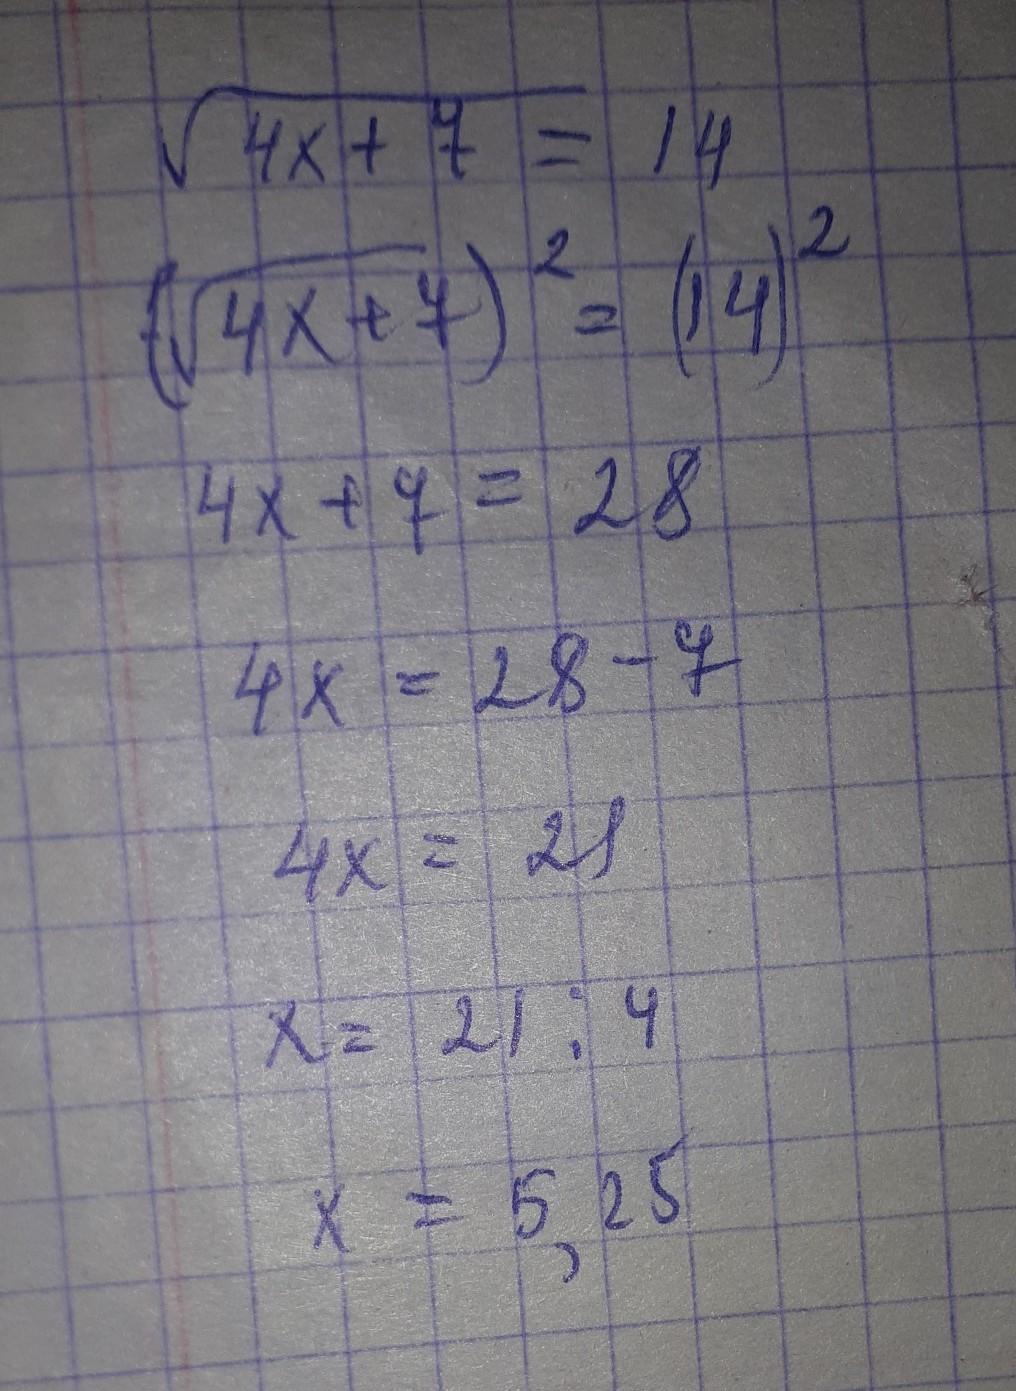 √4x+7 = 14
(√4x+7)² = (14)²
4x+7 = 28
4x = 28-7
4x = 21
x = 21 : 4
x = 5,25